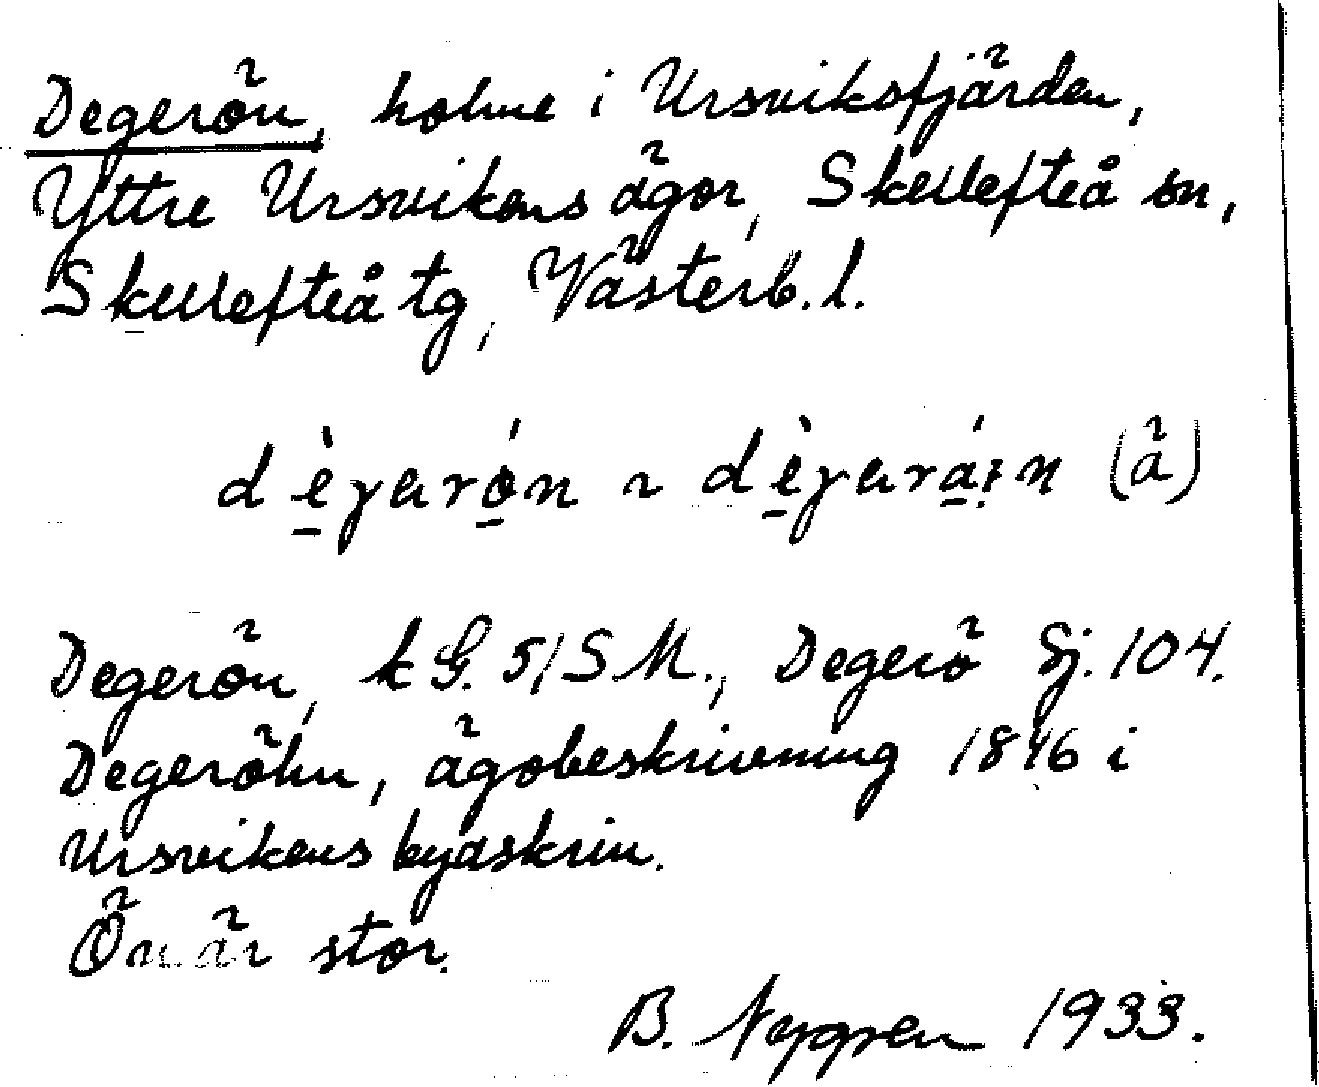 Degerön, holme i Ursviksfjärden,
Yttre Ursvikens ägor, Skellefteå sn,
Skellefteå tg, Västerb. l.
dèγarón ~ dèγará:n (ä)
Degerön, kG. 51 S M., Degerö Sj. 104.
Degeröhn, ägobeskrivning 1846 i
Ursvikens byaskrin.
Ön är stor.
B. Nygren 1933.